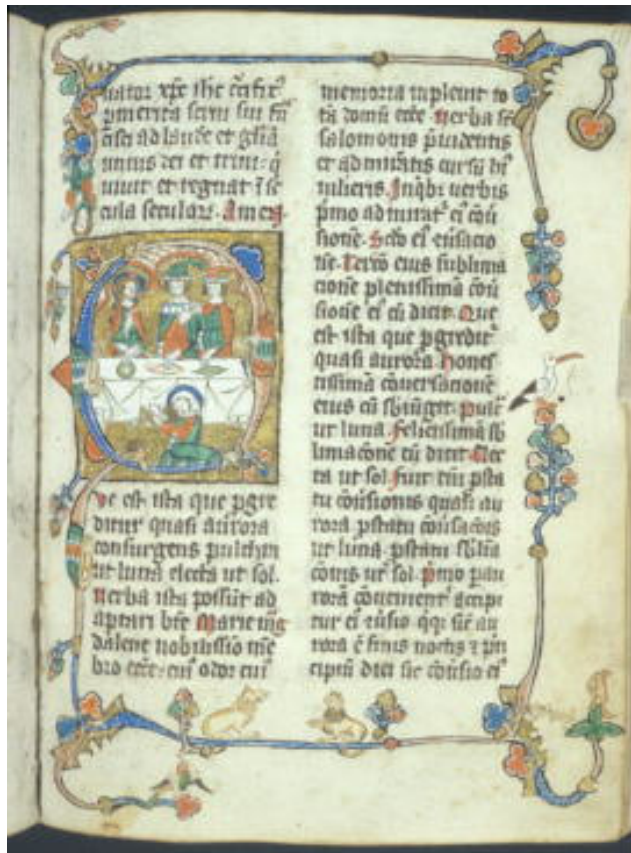 nator xpe ihc
merita serui sui
cisci ad laude et glia
unius dei et trini q
uiuit et regnat i se
cula seculor. Amen.
ue est ista que pgre
ditur quasi aurora
consurgens pulchra
ut luna electa ut sol.
Uerba ista possut ad
aptari bte Marie mag
dalene nobilissio me
bro eccle cui odor cui
memoria impleuit to
ta domu eccle. Uerba st
salomonis puidentis
et admiratis cursu hi
mulieris. In qbz uerbis
pmo admirat ei cou
sione. Scdo ei
ne. Tercio eius sublima
cione plenissima cou
sione ei cu dicit. Que
est ista que pgredit
quasi aurora hones
tissima couersacione
eius cu sbiunget. pulc
ut luna. felicissima sb
limacone cu dicit. Elec
ta ut sol. fuit eni psta
tu couisionis quasi au
rora pstatu
ut luna. pstatu sblia
conis ut sol. pmo p au
rora couenient accipi
tur ei
rora e finis noctis z pn
cipiu diei sic couisio ei